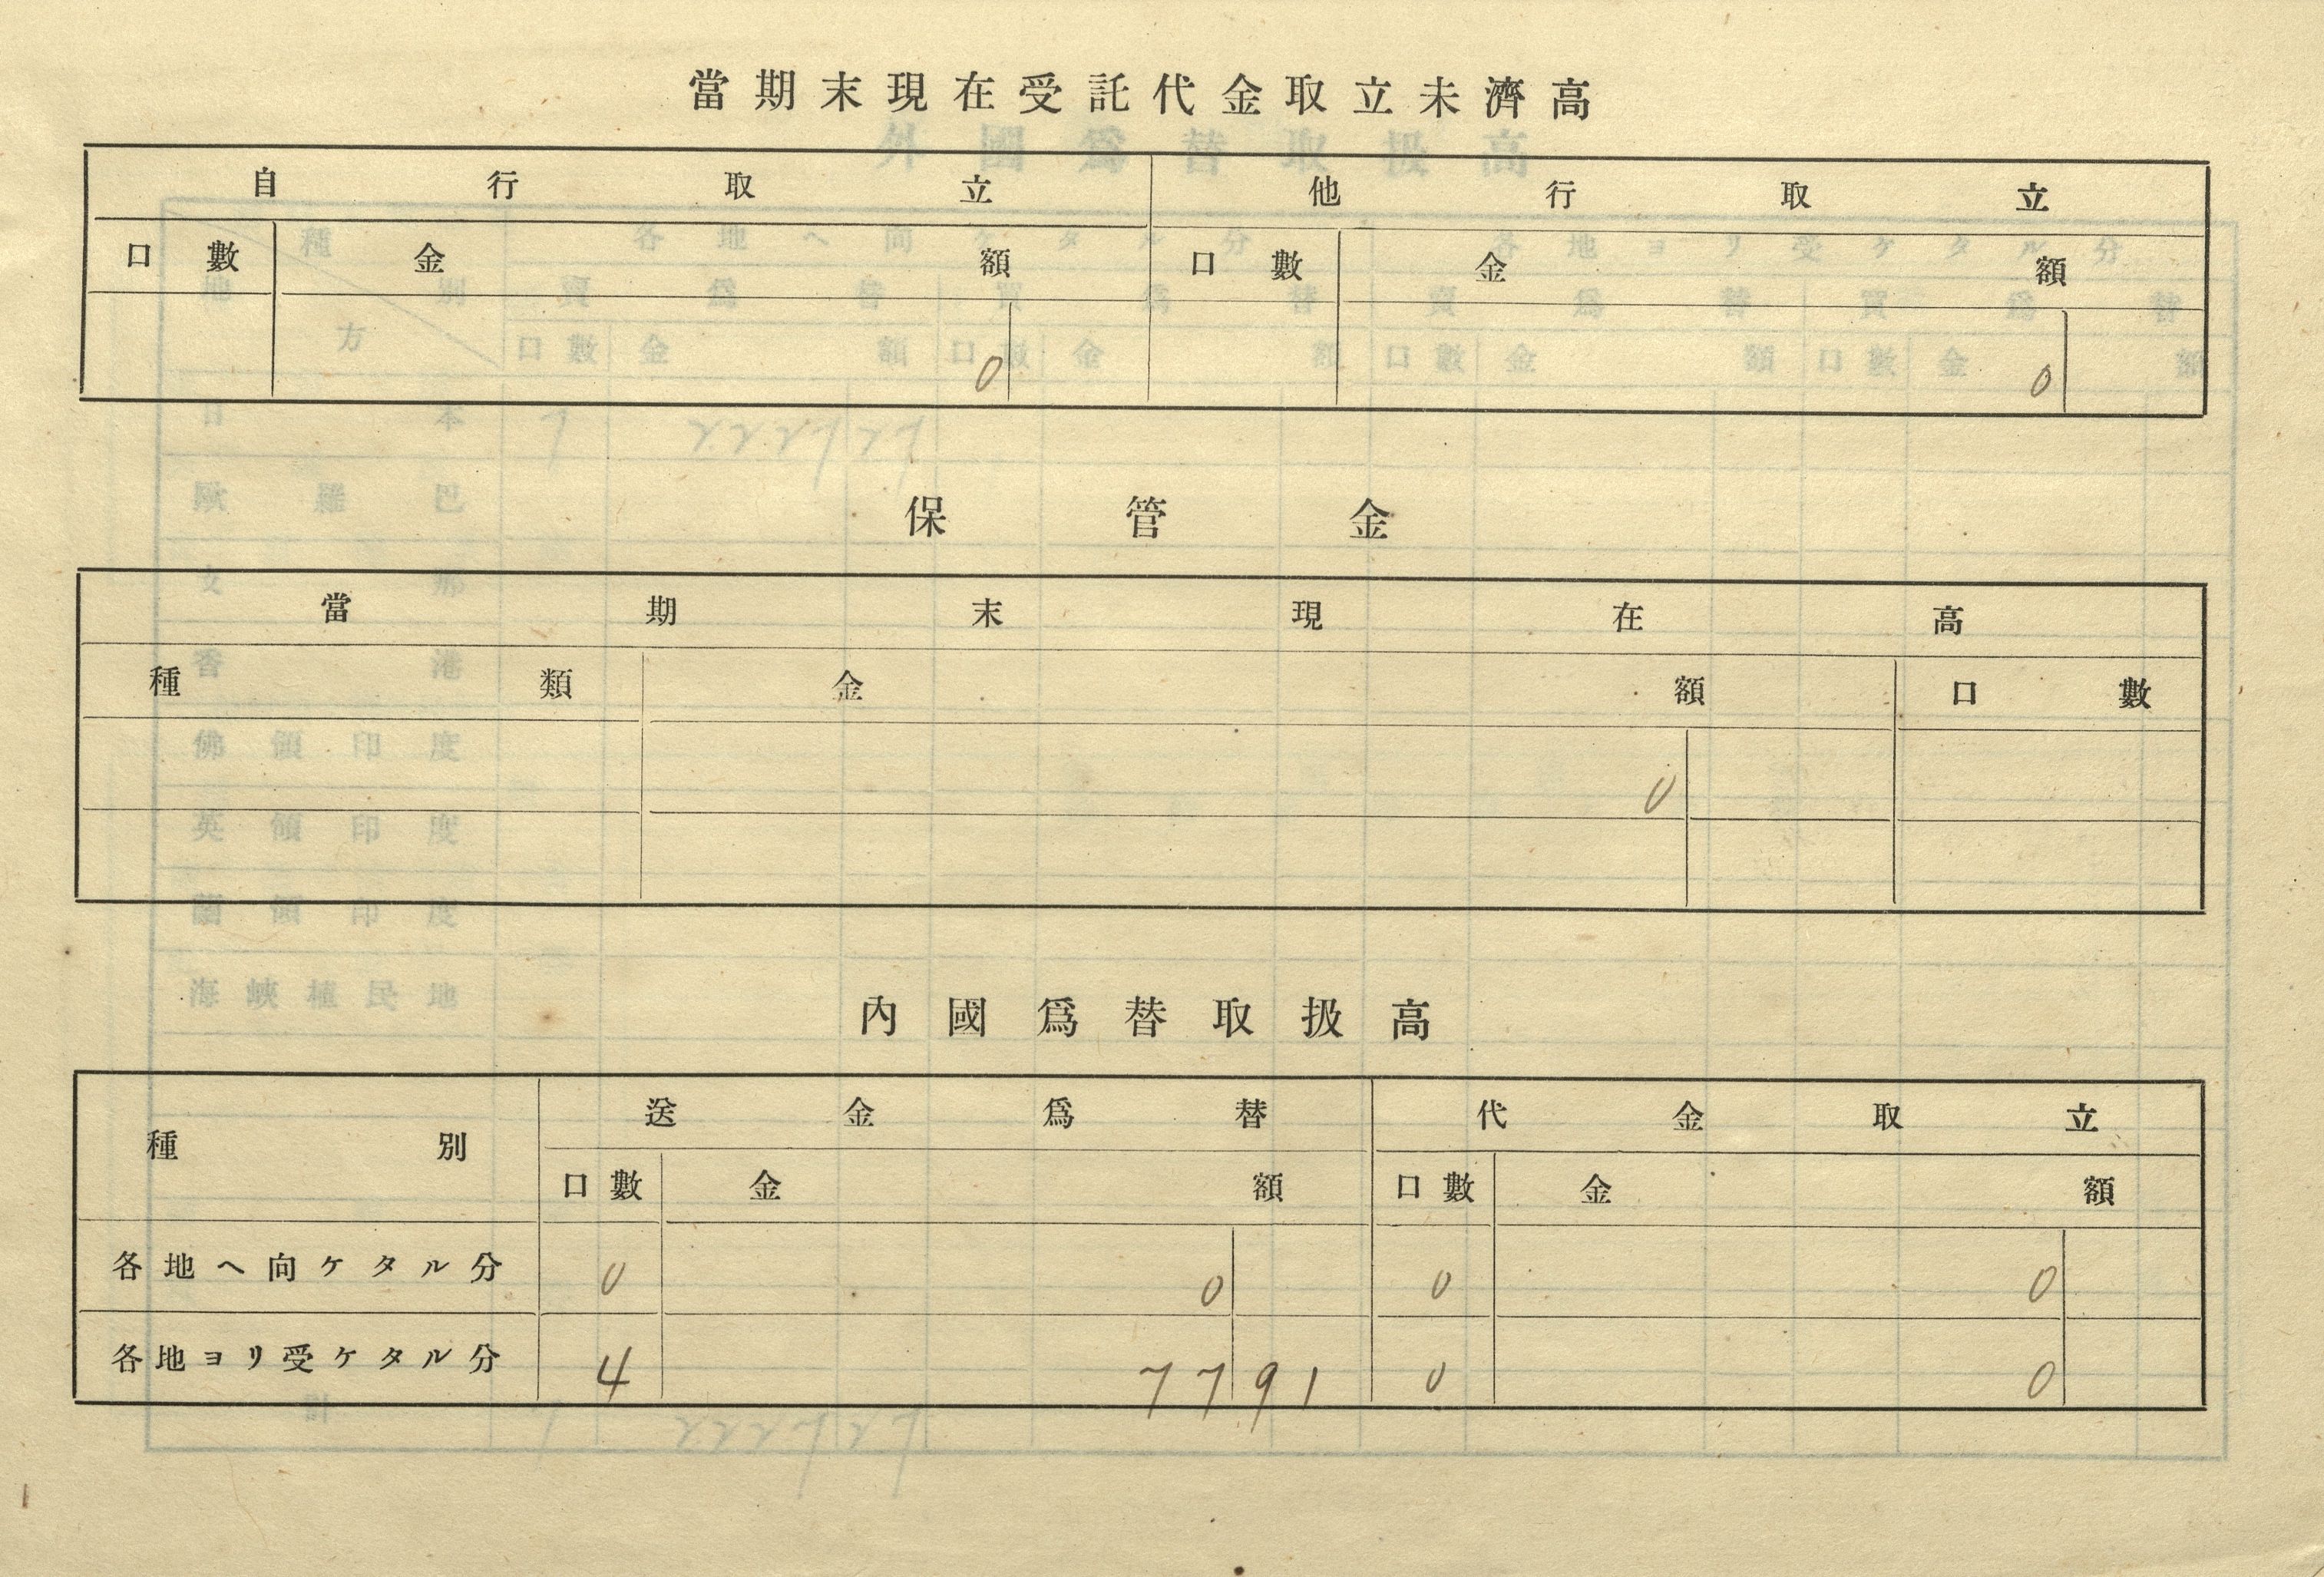 當期末現在受託代金取立未濟高
自行取立 他行取立
口數 金額 口數 金額
0 0
保管金
當期末現在高
種類 金額 口數
0
內國爲替取扱高
種別 送金爲替 代金取立
口數 金額 口數 金額
各地へ向ケタル分 0 0 0 0
各地ヨリ受ケタル分 4 77 91 0 0